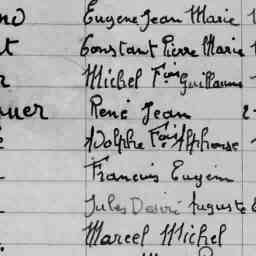 Eugene Jean Marie
Constant Pierre Marie
Michel Fois Guillaume
René Jean
Adolphe Fois Alphonse
Francois Eugein
Jules Desiré Auguste
Marcel Michel